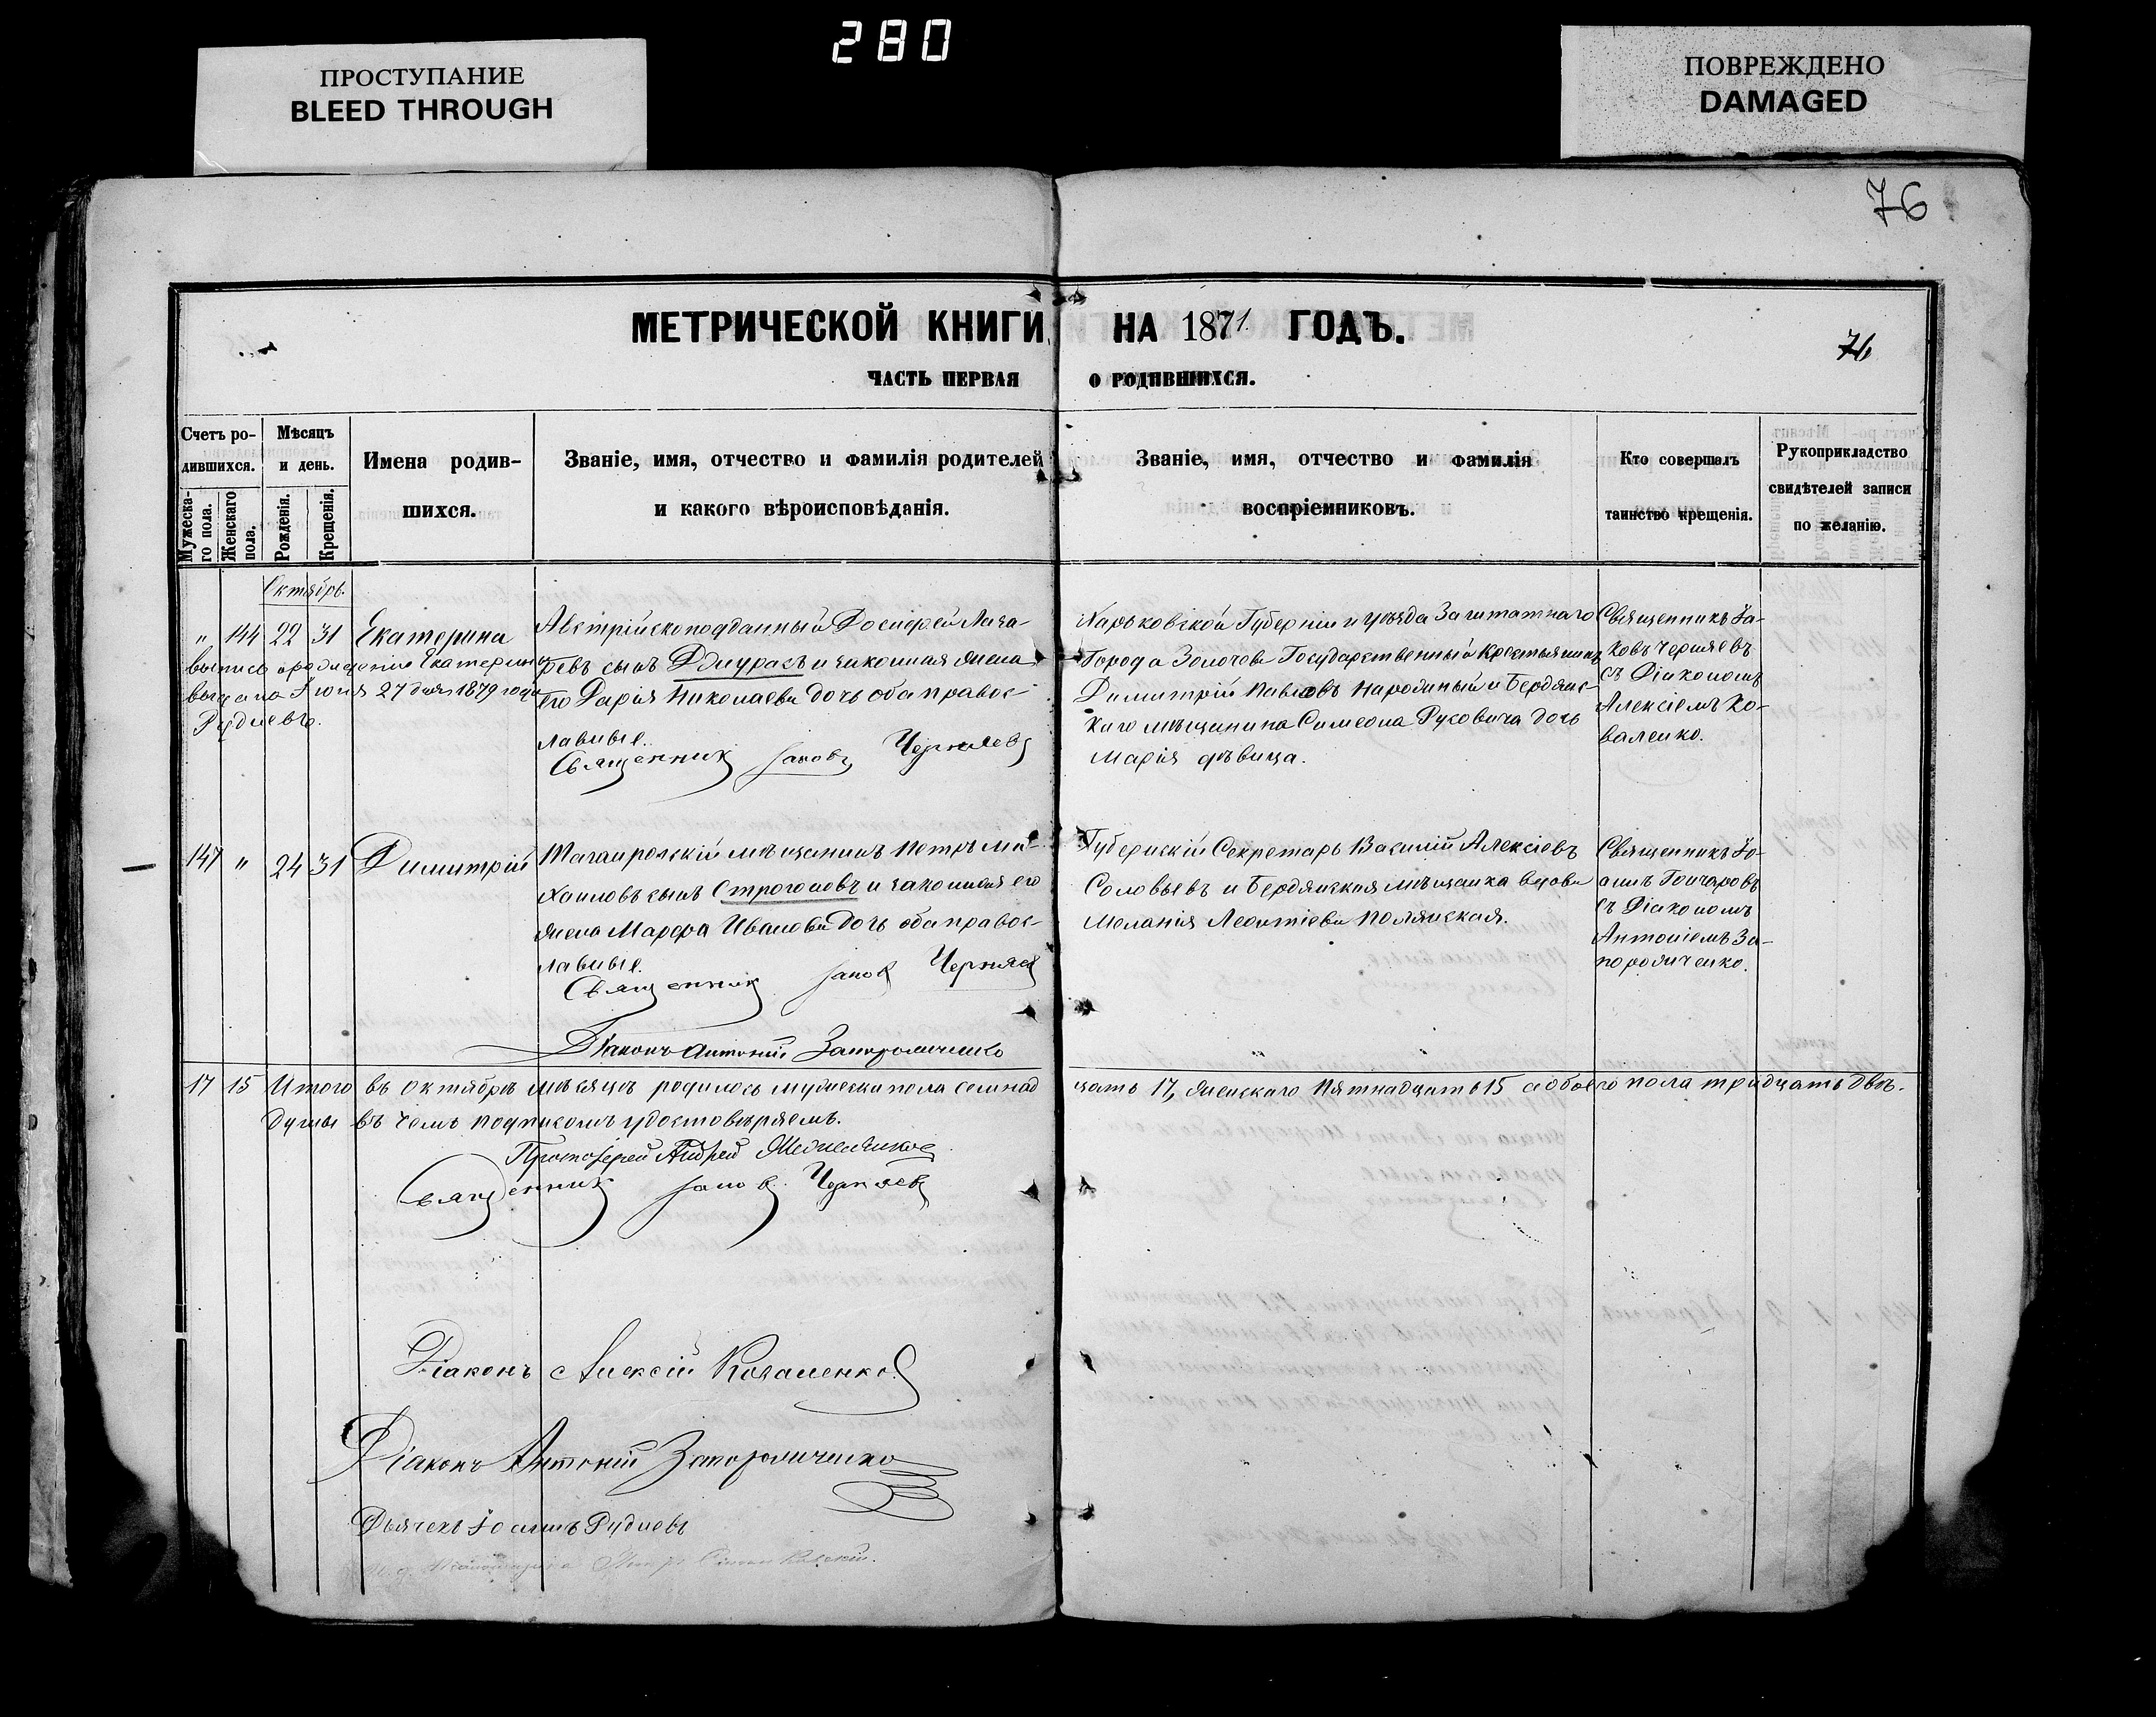 280
ПРОСТУПАНИЕ
BLEED THROUGH
ПОВРЕЖДЕНО
DAMAGED
76
МЕТРИЧЕСКОЙ КНИГИ НА 1871 ГОДЪ.
76
ЧАСТЬ ПЕРВАЯ О РОДИВШИХСЯ.
Счетъ ро-
дившихся.
Мужеска-
го пола.
Женскаго
пола.
Мѣсяцъ
и день.
Рожденія.
Крещенія.
Имена родив-
шихся.
Званіе, имя, отчество и фамилія родителей
и какого вѣроисповѣданія.
Званіе, имя, отчество и фамилія
воспріемниковъ.
Кто совершалъ
таинство крещенія.
Рукоприкладство
свидѣтелей записи
по желанію.
Октябрь.
" 144 22 31 Екатерина
выпись о рожденіи Екатерины
выдана Іюня 27 дня 1879 года
Рудневъ.
Австрійскоподданный
сынъ и законная жена
его Дарія Николаева дочь оба правос-
лавные.
Священникъ Іаковъ Черняевъ
Харьковской Губерніи и уѣзда Заштатнаго
Города Золочева Государственный Крестьянинъ
Димитрій Павловъ Народный и Бердянс-
каго мѣщанина Симеона Русовича дочь
Марія дѣвица.
Священникъ Іа-
ковъ Черняевъ
съ Діакономъ
Алексіемъ Ко-
валенко.
147 " 24 31 Димитрій
Таганрогскій мѣщанинъ Петръ Ми-
хаиловъ сынъ Строгоновъ и законная его
жена Марфа Иванова дочь оба правос-
лавные.
Священникъ Іаковъ Черняевъ
Діаконъ Антоній Запорожченко
Губернскій Секретарь Василій Алексіевъ
Соловьевъ и Бердянская мѣщанка вдова
Меланія Леонтіева Полянская.
Священникъ Іо-
аннъ Гончаровъ
съ Діакономъ
Антоніемъ За-
порожченко.
17 15 Итого въ октябрѣ мѣсяцѣ родилось мужеска пола семнад
цать 17, женскаго пятнадцать 15 а обоего пола тридцать двѣ.
души въ чемъ подписомъ удостовѣряемъ.
Протоіерей Андрей
Священникъ Іаковъ Черняевъ
Діаконъ Алексій Коваленко
Діаконъ Антоній Запорожченко
Дьячекъ Іоаннъ Рудневъ